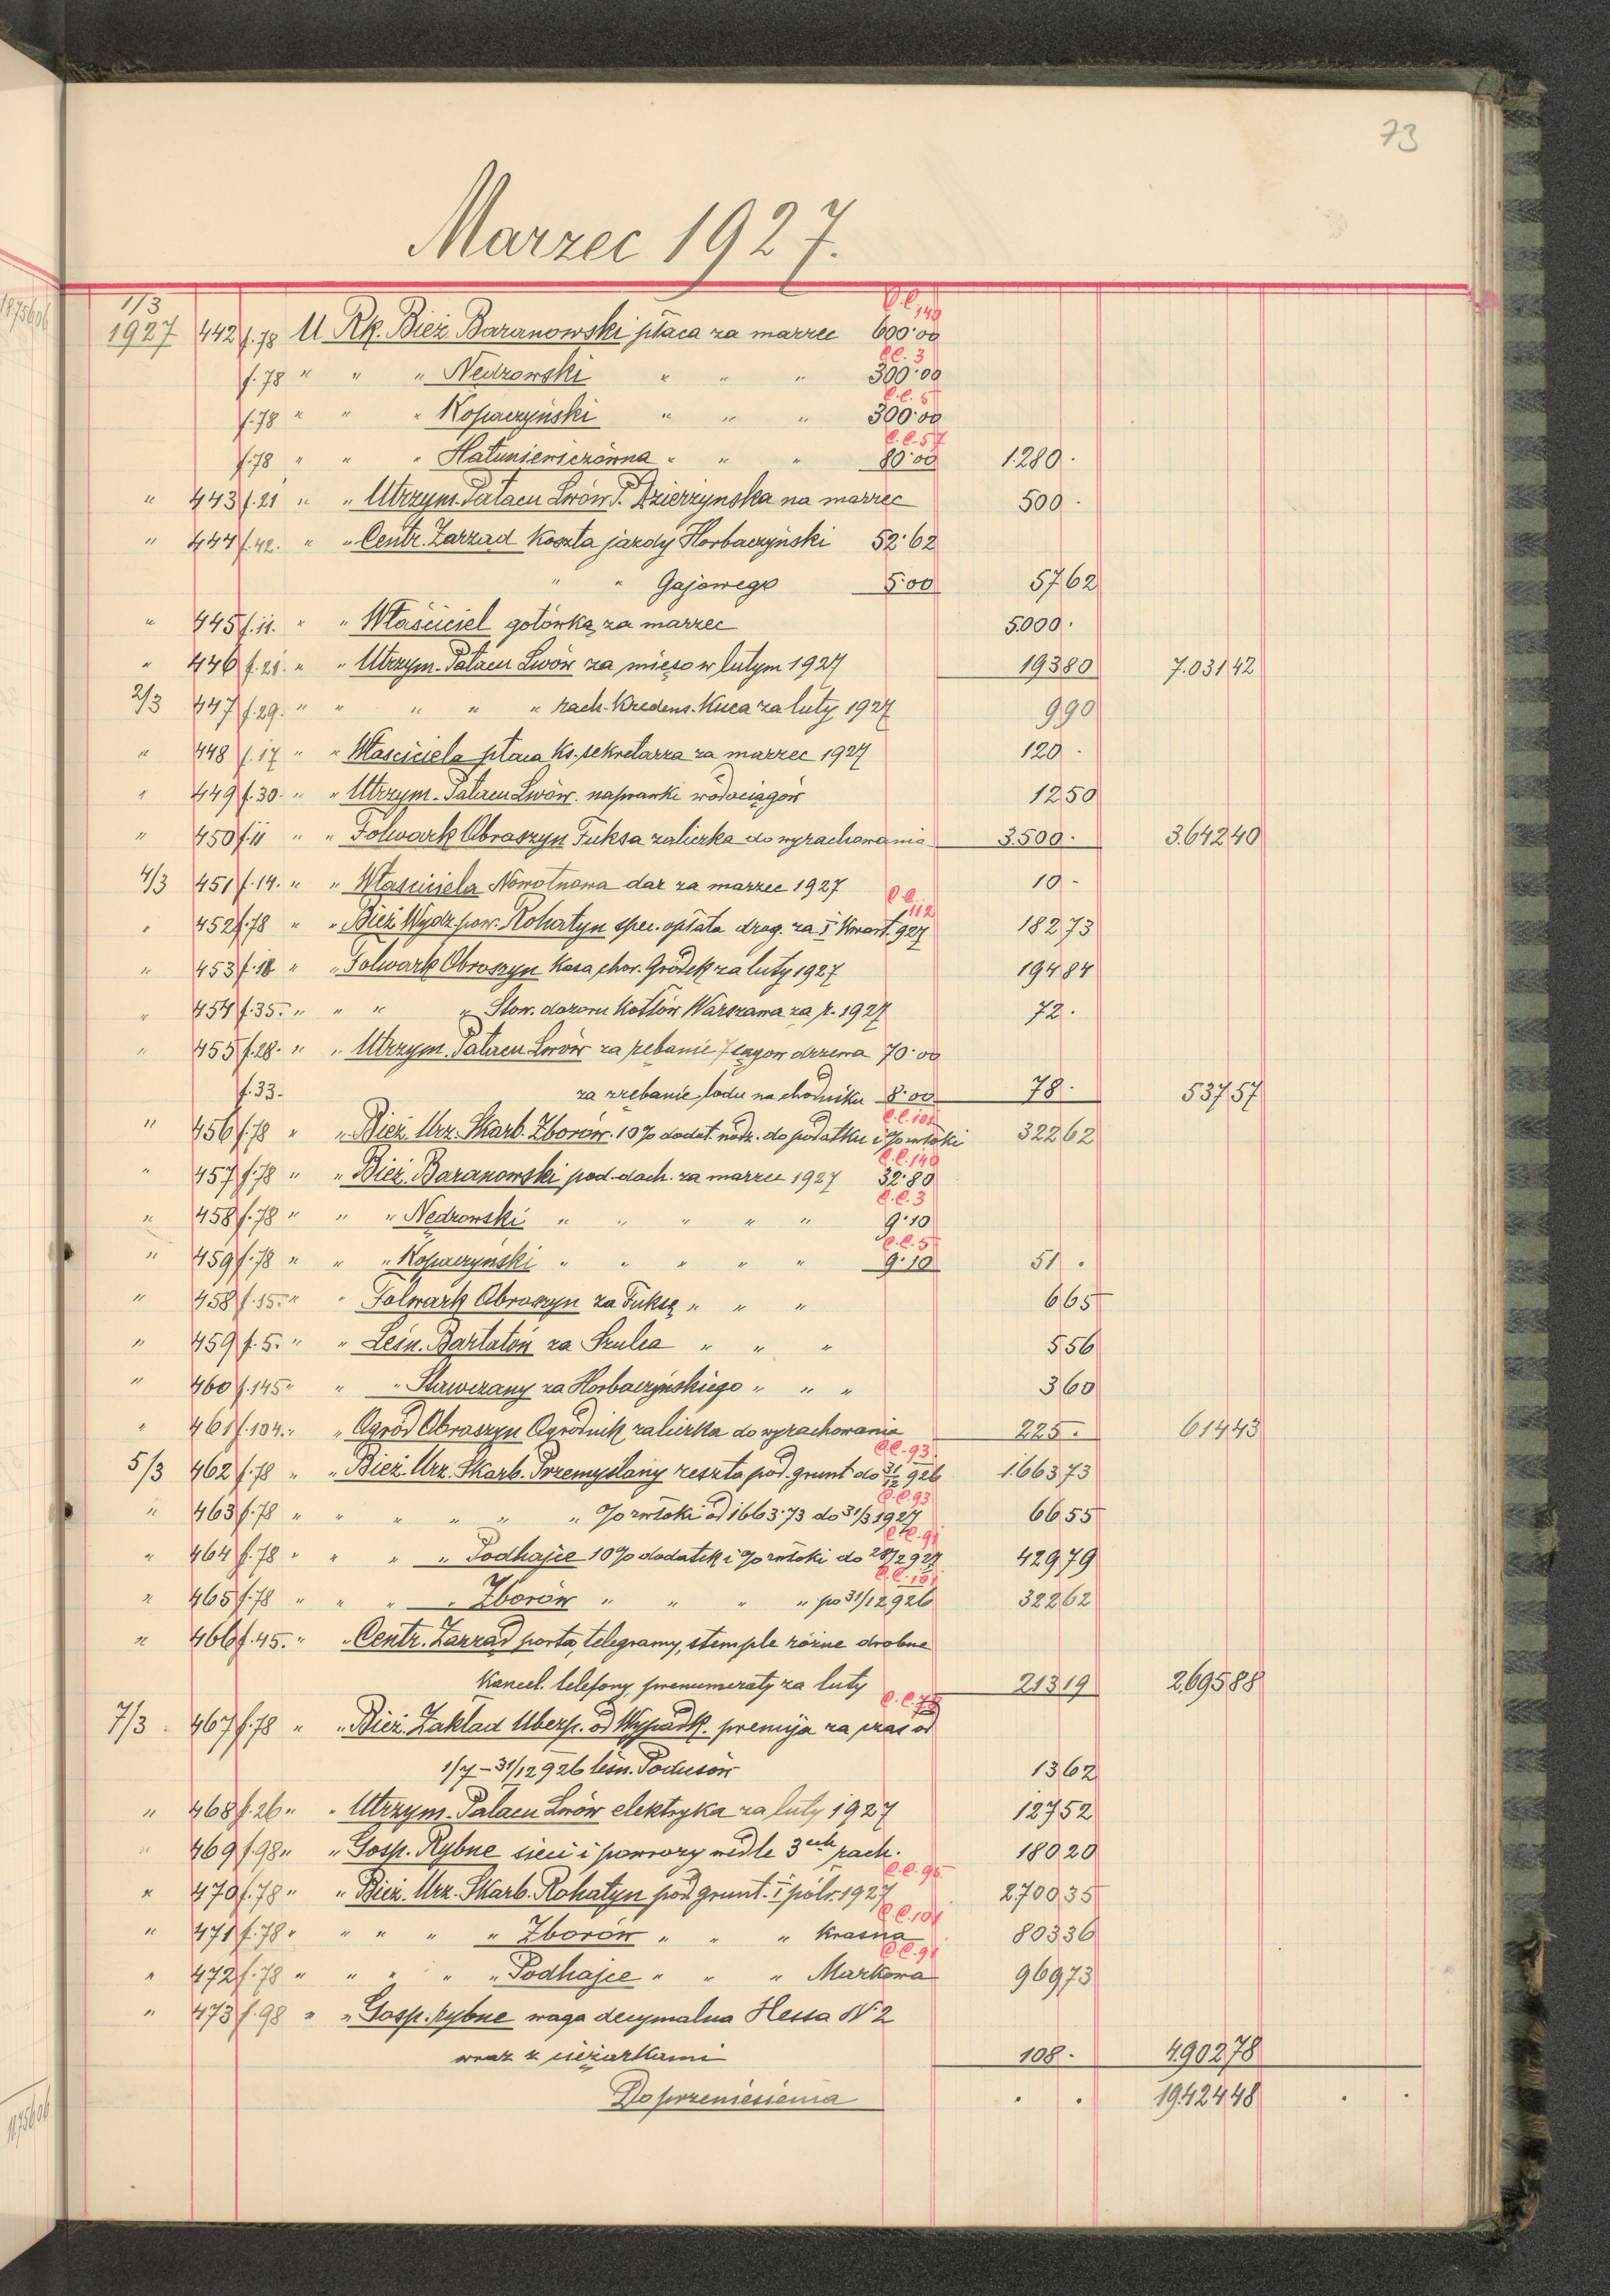 73
Marzec 1927.
1/3 C.C. 140
1927 442 f.78 U Rk. Bież. Baranowski płaca za marzec 600·00
C.C. 3
f.78 " " " Nedzowski " " " 300·00
C.C. 5
f.78 " " " Kopaczyński " " " 300·00
C.C. 57
f.78 " " " Hatuniewiczówna " " " 80·00 1.280 ·
" 443 f.21 " " Utrzym. Pałacu Lwów P. Dzierżynska na marzec 500 ·
" 444 f.42. " " Centr. Zarząd Koszta jazdy Horbaczyński 52·62
" " Gajowego 5·00 57 62
" 445 f.11. " " Właściciel gotówką za marzec 5.000 ·
" 446 f.21. " " Utrzym. Pałacu Lwów za mięso w lutym 1927 193 80 7.031 42
2/3 447 f.29. " " " " " rach. Kredens. Kuca za luty 1927 9 90
" 448 f.17 " " Właściciela płaca Ks. sekretarza za marzec 1927 120 ·
" 449 f.30. " " Utrzym. Pałacu Lwów. naprawki wodociągów 12 50
" 450 f.11 " " Folwark Obroszyn Fuksa zaliczka do wyrachowania 3.500 · 3.642 40
4/3 451 f.14. " " Właściciela Nowotnowa dar za marzec 1927 10 -
C.C. 112
" 452 f.78 " " Bież. Wydz. pow. Rohatyn spec. opłata drog. za I Kwart. 927 182 73
" 453 f.18 " " Folwark Obroszyn Kasa chor. Gródek za luty 1927 194 84
" 454 f.35. " " " " Stow. dozoru Kotłów Warszawa za r. 1927 72 ·
" 455 f.28. " " Utrzym. Pałacu Lwów za rębanie 7 sągów drzewa 70·00
f.33. za zrębanie lodu na chodniku 8·00 78 · 537 57
C.C. 101
" 456 f.78 " " Bież. Urz. Skarb. Zborów. 10% dodat. nadz. do podatku i % zwłoki 322 62
C.C. 140
" 457 f.78 " " Bież. Baranowski pod. doch. za marzec 1927 32·80
C.C. 3
" 458 f.78 " " " Nedzowski " " " " " 9·10
C.C. 5
" 459 f.78 " " " Kopaczyński " " " " " 9·10 51 ·
" 458 f.15. " " Folwark Obroszyn za Fuksę " " " 6 65
" 459 f.5. " " Leśn. Bartatów za Szulca " " " 5 56
" 460 f.145 " " " Stawczany za Horbaczyńskiego " " " 3 60
" 461 f.104. " " Ogród Obroszyn Ogrodnik zaliczka do wyrachowania 225 · 614 43
C.C. 93
5/3 462 f.78 " " Bież. Urz. Skarb. Przemyślany reszta pod. grunt do 31/12 926 1.663 73
C.C. 93
" 463 f.78 " " " " " " % zwłoki od 1663·73 do 31/3 1927 66 55
C.C. 91
" 464 f.78 " " " " Podhajce 10% dodatek i % zwłoki do 28/2 927 429 79
C.C. 101
" 465 f.78 " " " " Zborów " " " " po 31/12 926 322 62
" 466 f.45. " " Centr. Zarząd porta, telegramy, stemple różne drobne
Kancel. telefony, prenumeraty za luty 213 19 2.695 88
C.C. 78
7/3 - 467 f.78 " " Bież. Zakład Ubezp. od Wypadk. premija za czas od
1/7 - 31/12 926 leśn. Podusów 13 62
" 468 f.26 " " Utrzym. Pałacu Lwów elektryka za luty 1927 127 52
" 469 f.98 " " Gosp. Rybne sieci i powrozy wedle 3ech rach. 180 20
C.C. 95
" 470 f.78 " " Bież. Urz. Skarb. Rohatyn pod. grunt. I półr. 1927 2.700 35
C.C. 101
" 471 f.78 " " " " " Zborów " " " Krasna 803 36
C.C. 91
" 472 f.78 " " " " " Podhajce " " " Markowa 969 73
" 473 f.98 " " Gosp. rybne waga decymalna Hessa N 2
wraz z ciężarkami 108 · 4.902 78
Do przeniesienia · · 19.424 48 · ·